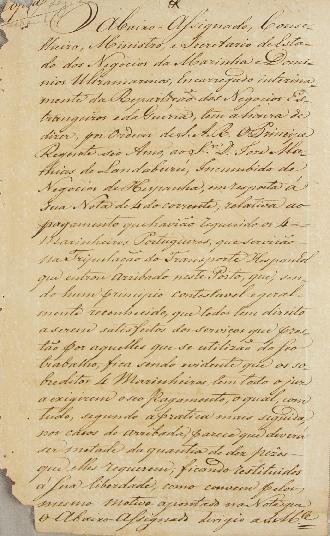 O Abaixo-Assignado, Conse-
lheiro, Ministro, e Secretario de Esta-
do dos Negocios da Marinha e Domi-
nios Ultramarinos, Encarregado interina-
mente da Repartição dos Negocios Es-
trangeiros e da Guerra, tem a honra de
dizer, por Ordem de S. A. R. O Principe
Regente seo Amo, ao Snr. D. Joze Ma-
thias de Landaburú, Incumbido de
Negocios de Hespanha, em resposta á
Sua Nota de 4 do corrente, relativa ao
pagamento que havião requerido os 4
Marinheiros Portuguezes, que servirão
na Tripulação do Transporte Hespanhol
que entrou Arribado neste Porto, que, sen-
do hum principio contestavel e geral-
mente reconhecido, que todos tem direito
a serem satisfeitos dos serviços que pres-
tão por aquelles que se utilizão do seo
trabalho, fica sendo evidente que os so-
breditos 4 Marinheiros tem todo o jus
a exigirem o seo pagamento, o qual, com
tudo, segundo a pratica mais seguida
nos casos de arribada, parece que deverá
ser metade da quantia de dez pezos
que elles requerem, ficando restituidos
á Sua liberdade, como convem pelo
mesmo motivo apontado na Nota que
o Abaixo-Assignado dirigio a S. Mce.